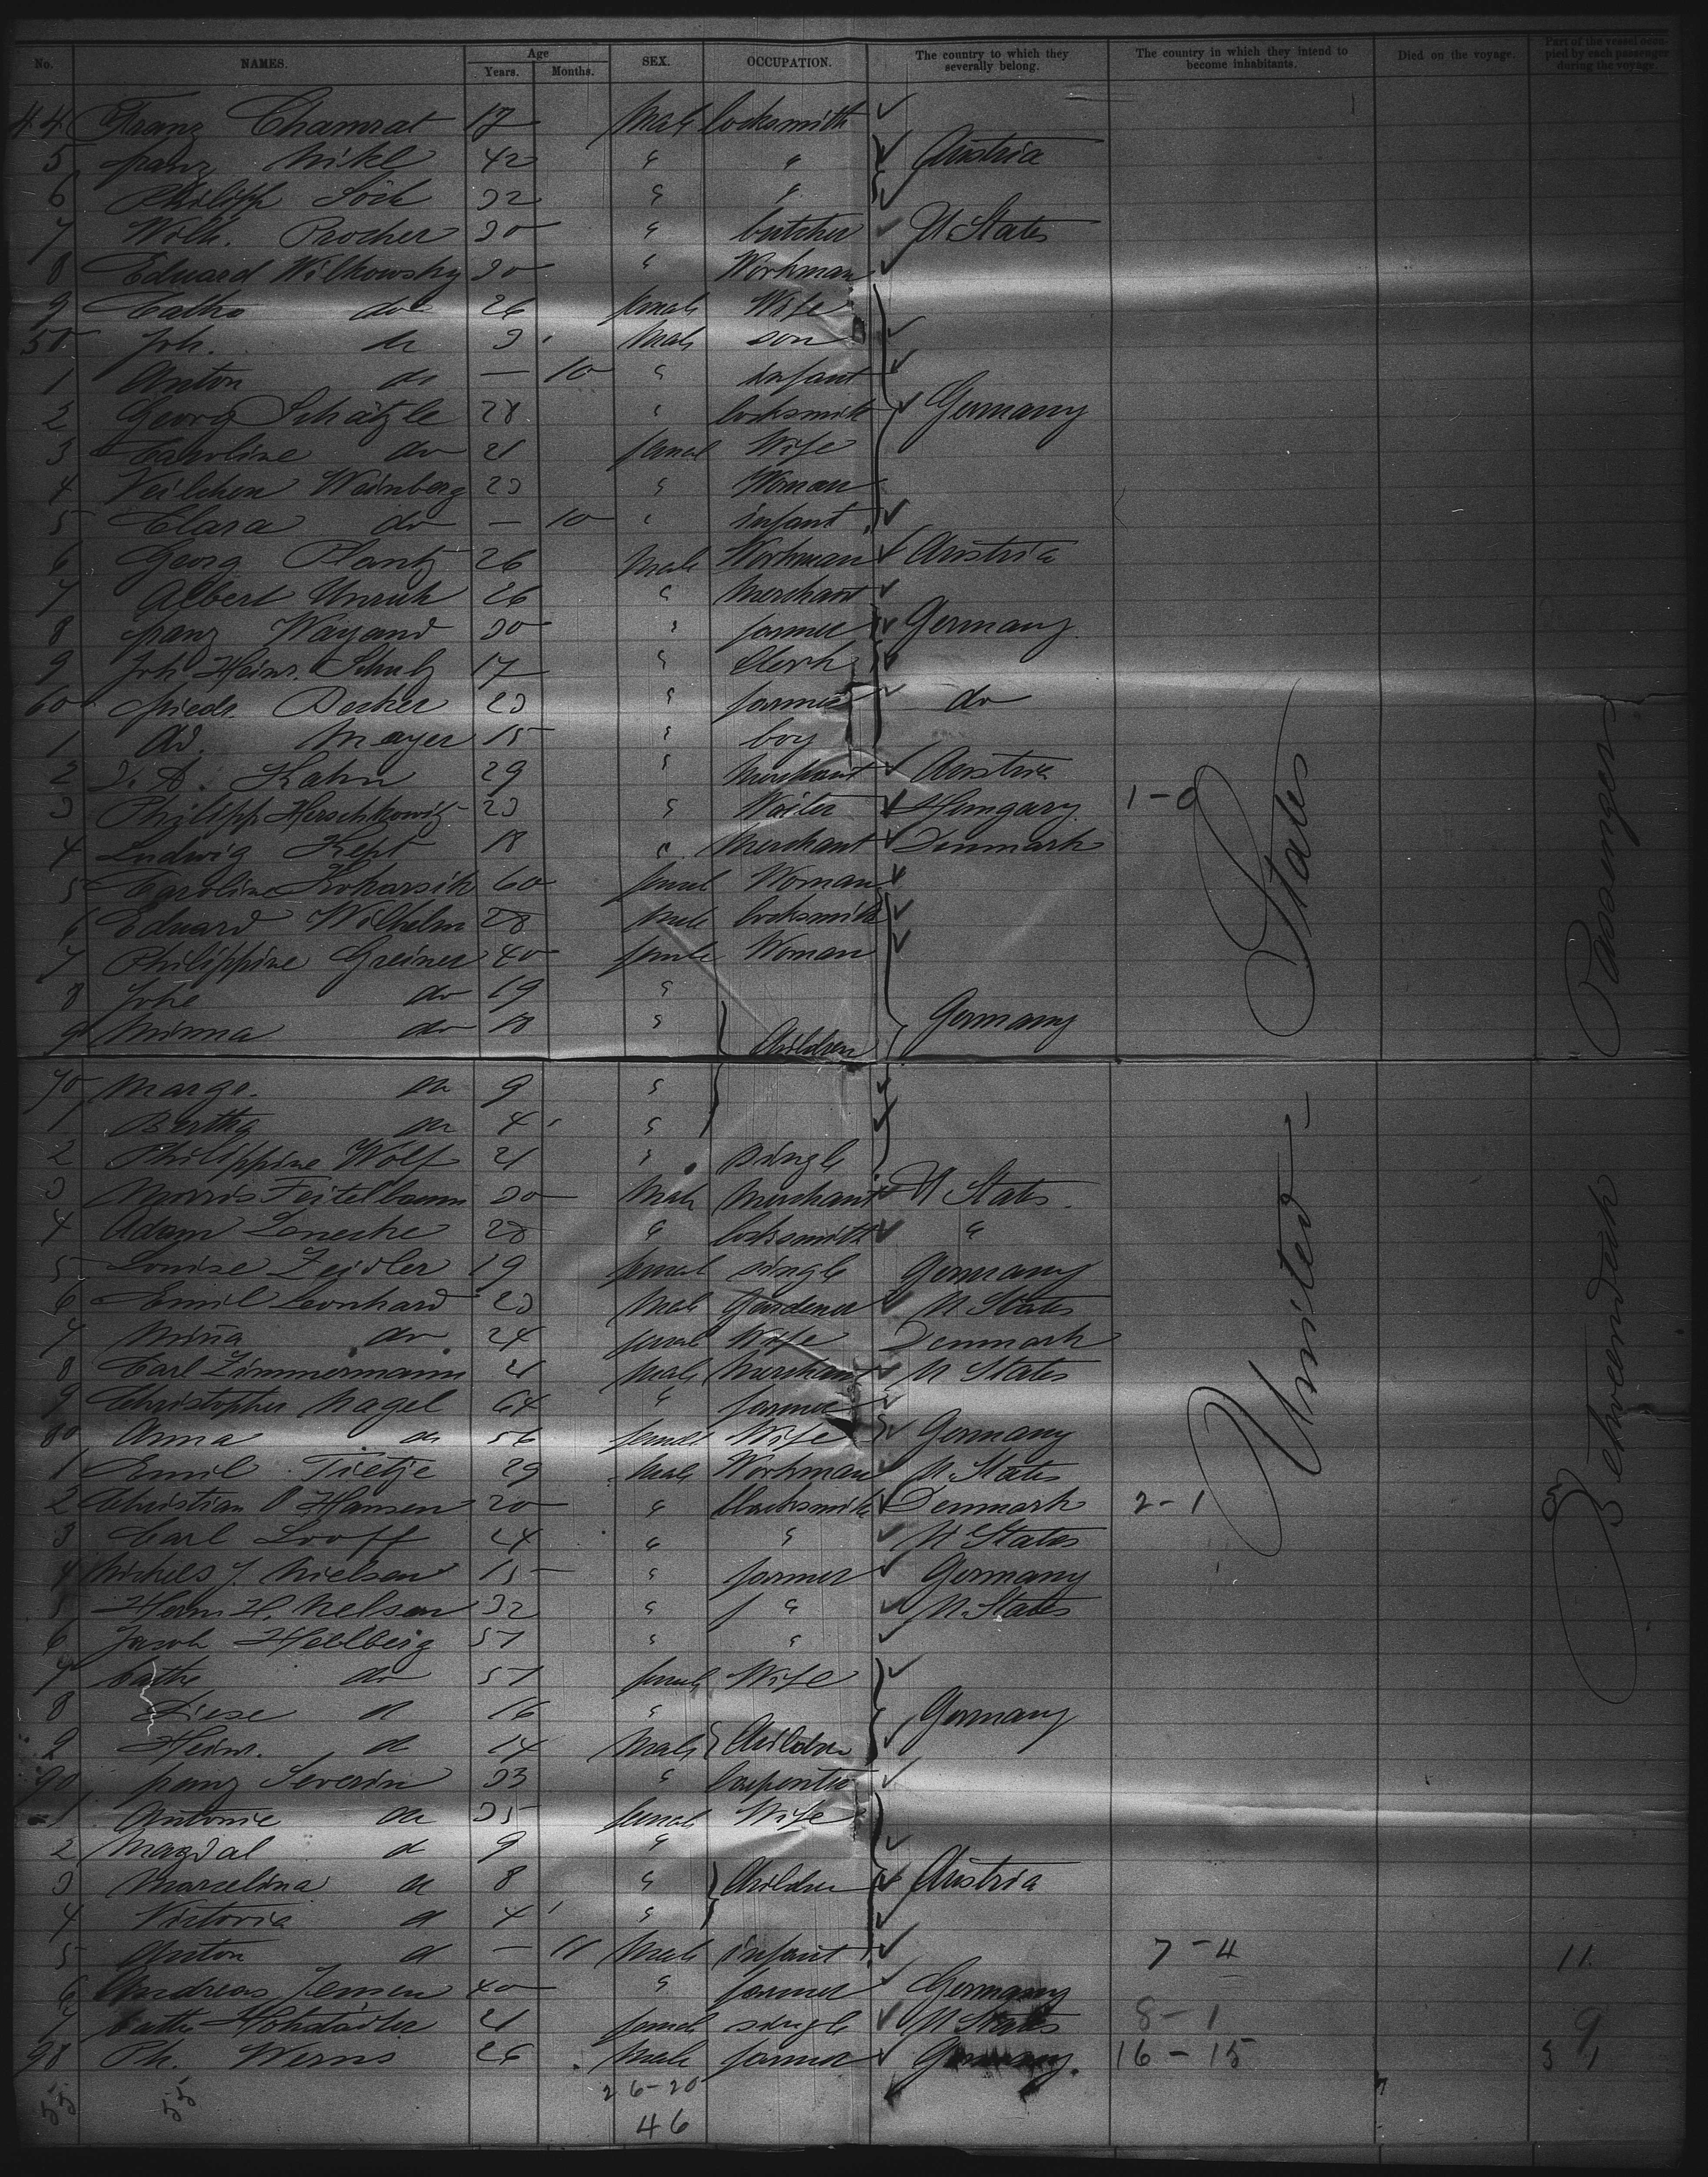 No. NAMES. Age Years. Months. SEX. OCCUPATION. The country to which they severally belong. The country in which they intend to become inhabitants. Died on the voyage. Part of the vessel occupied by each passenger during the voyage.
44 Franz Chamrat 17 Male locksmith
5 franz Nikl 42 " " Austria
6 Philipp 32 " "
7 Wilh. Procher 30 " butcher U States
8 Eduard Wilkowsky 30 " Workman
9 Cathe do 26 female Wife
50 Joh. do 3 Male son
1 Anton do — 10 " infant
2 Georg Schätzle 28 " locksmith Germany
3 Caroline do 21 femal Wife
4 Veilchen Weinberg 23 " Woman
5 Clara do — 10 " infant
6 Georg Plantz 26 Male Workman Austria
7 Albert Unruh 26 " Merchant
8 franz Wayand 30 " farmer Germany
9 Joh Heinr. Schulz 17 " Clerk
60 friedr. Decker 23 " farmer do
1 Ad. Mayer 15 " boy
2 Kahn 29 " Merchant Austria
3 Philipp Herschkowitz 23 " Waiter Hungary 1-0
4 Ludwig Kept 18 " Merchant Denmark
5 Caroline Kokarsik 60 femal Woman
6 Eduard Wilhelm 28 Male locksmith
7 Philippine Greiner 40 female Woman
8 Johe do 19 "
9 Minna do 18 " Children Germany
70 Marge. do 9 "
1 Bertha do 4 "
2 Philippine Wolf 21 " single
3 Morris Feitelbaum 30 Male Merchant U States
4 Adam 28 " locksmith "
5 Louise Zeidler 19 femal single Germany
6 Emil Leonhard 23 Male Gardener U States
7 Mina do 24 femal Wife Denmark
8 Carl Zimmermann 21 Male Merchant U States
9 Christopher Nagel 64 " farmer
80 Anna do 56 female Wife Germany
1 Emil Tietje 29 Male Workman U. States
2 Christian P Hansen 20 " blacksmith Denmark 2-1
3 Carl Looff 24 " " U States
4 Nichels J. Nielsen 15 " farmer Germany
5 Herm H. Nelson 32 " " U. States
6 Jacob Hellberg 51 " "
7 Cathe do 51 female Wife
8 Liese do 16 " Germany
9 Heinr. do 14 Male Children
90 franz Severin 33 " Carpenter
1 Antonie do 35 female Wife
2 Magdal do 9 "
3 Marcelina do 8 " Children Austria
4 Victoria do 4 "
5 Anton do — 11 Male infant 7-4 11
6 Andreas Jensen 40 " farmer Germany
7 Cathe Hohstädter 21 female single U States 8-1 9
98 Ph. Werns 26 Male farmer Germany. 16-15
55 55 26-20
46
United States
Betweendeck Passengers